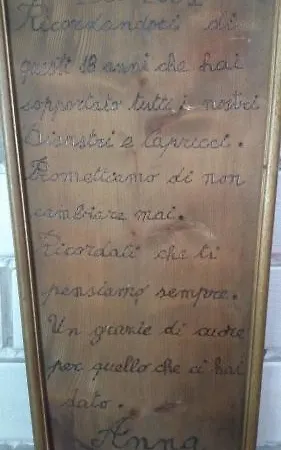 Ricordandoci di
questi 18 anni che hai
sopportato tutti i nostri
Disastri e Capricci.
Promettiamo di non
cambiare mai.
Ricordati che ti
pensiamo sempre.
Un grazie di cuore
per quello che ci hai
dato.
Anna